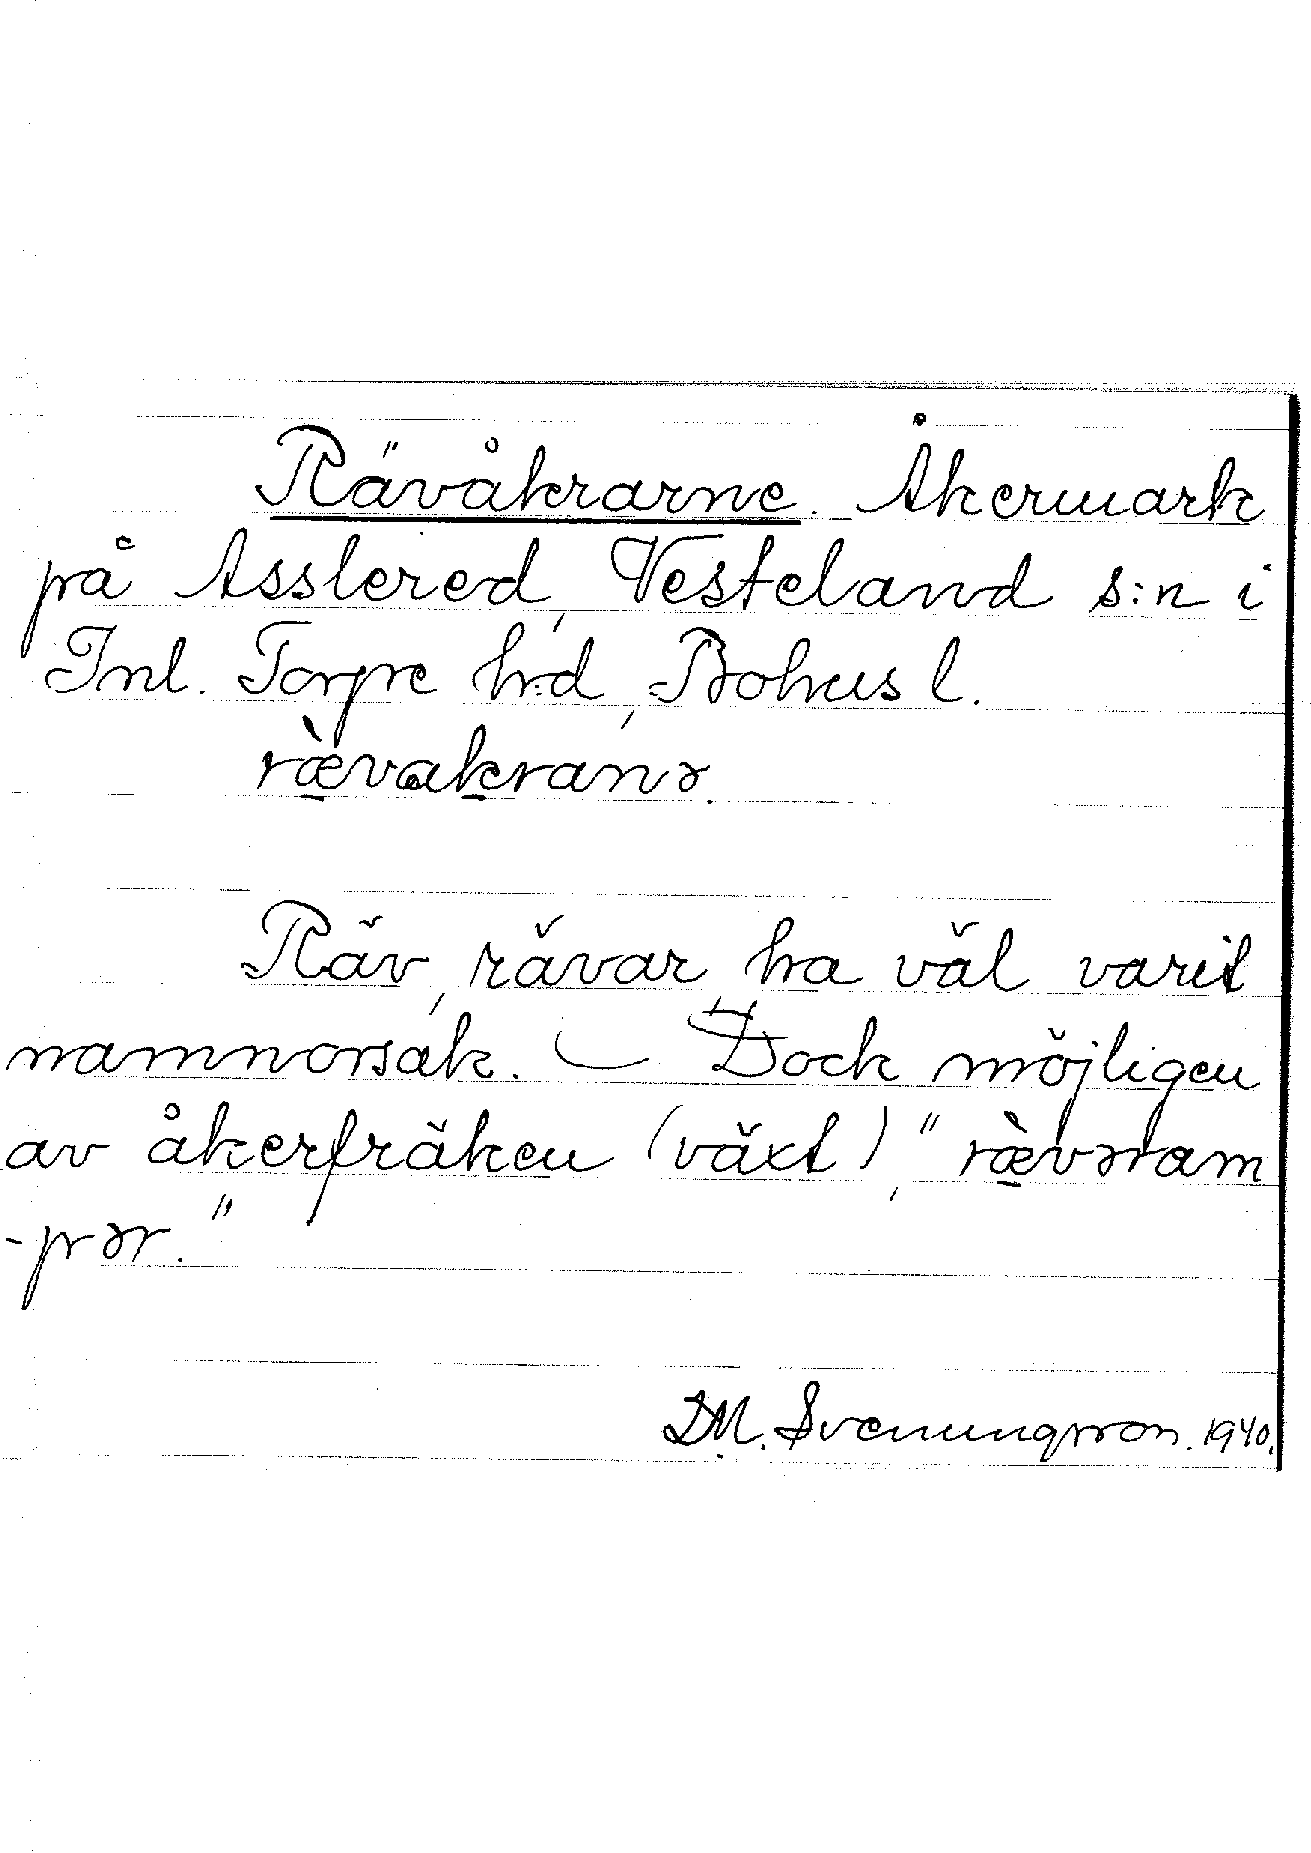 Rävåkrarne. Åkermark
på Asslered, Vesteland s:n i
Inl. Torpe h:d, Bohusl.
ræ̀vakranɘ.
Räv, rävar, ha väl varit
namnorsak. — Dock möjligen
av åkerfräken (växt), "ræ̀vɘram
-pɘr."
D.M. Svenungsson. 1940.